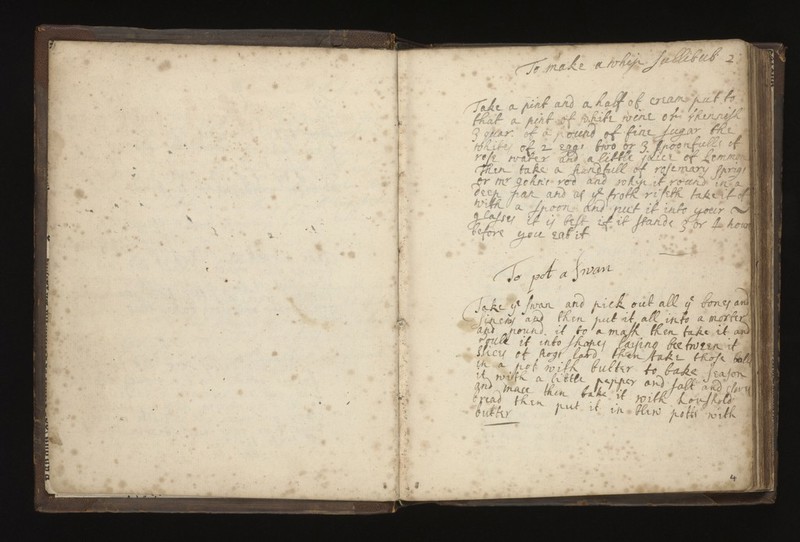 To make a whip sullibub 2
Take a pint and a half of cream put to
that a pint of white wine or rhennish
3 quar: of a pound of fine sugar the
whites of 2 eggs two or 3 spoonfulls of
rose water and a little juice of Lemmon
then take a handfull of rosemary sprigs
or rod and whip it round in a
deep pan and as ye froth riseth take it of
with a spoon and put it into your
glasses it is best if it stands 3 or 4 hours
before you eat it
To pot a Swan
Take ye swan and pick out all ye bones and
sinews and then put it all into a morter
and pound it to a mash then take it and
it into shapes between it
slices of hogs lard then take those
in a pot with butter to bake season
it with a little pepper and salt and
and mace then bake it with houshold
bread then put it in blew pots with
butter